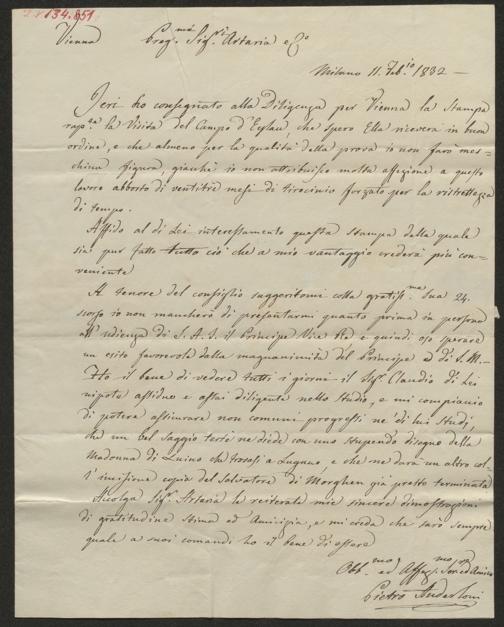 134.651
Vienna Preg.mi Sig.ri Artaria e C.o
Milano 11. Feb.io 1832 —
Jeri ho consegnato alla Diligenza per Vienna la Stampa
rapp.ta la Visita del Campo d'Eylau, che spero Ella riceverà in buon
ordine, e che almeno per la qualità della prova io non farò mes-
china figura, giacchè io non attribuisco molta affezione a questo
lavoro abborto di ventitrè mesi di tirocinio forzato per la ristrettezza
di tempo.
Affido al di Lei interessamento questa stampa della quale
sia pur fatto tutto ciò che a mio vantaggio crederà più con-
veniente
A tenore del consiglio suggeritomi colla gratiss.ma Sua 24.
scorso io non mancherò di presentarmi quanto prima in persona
all'udienza di S.A.I. il Principe Vice Re e quindi oso sperare
un esito favorevole dalla magnanimità del Principe e di S.M.—
Ho il bene di vedere tutti i giorni il Sig.r Claudio di Lei
nipote assiduo e assai diligente nello studio, e mi compiaccio
di potere assicurare non comuni progressi ne' di lui studj,
che un bel saggio testè ne diede con uno stupendo disegno della
Madonna di Luino che trovasi a Lugano, e che ne darà un altro col-
l'incisione copia del Salvatore di Morghen già presto terminata
Accolga Sig.r Artaria le reiterate mie sincere dimostrazioni
di gratitudine stima ed Amicizia, e mi creda che sarò sempre
quale a suoi comandi ho il bene di essere
Obb.mo ed Affez.mo Ser.r ed Amico
Pietro Anderloni